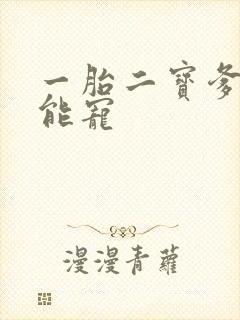 一胎二寶爹
能寵
漫漫青蘿